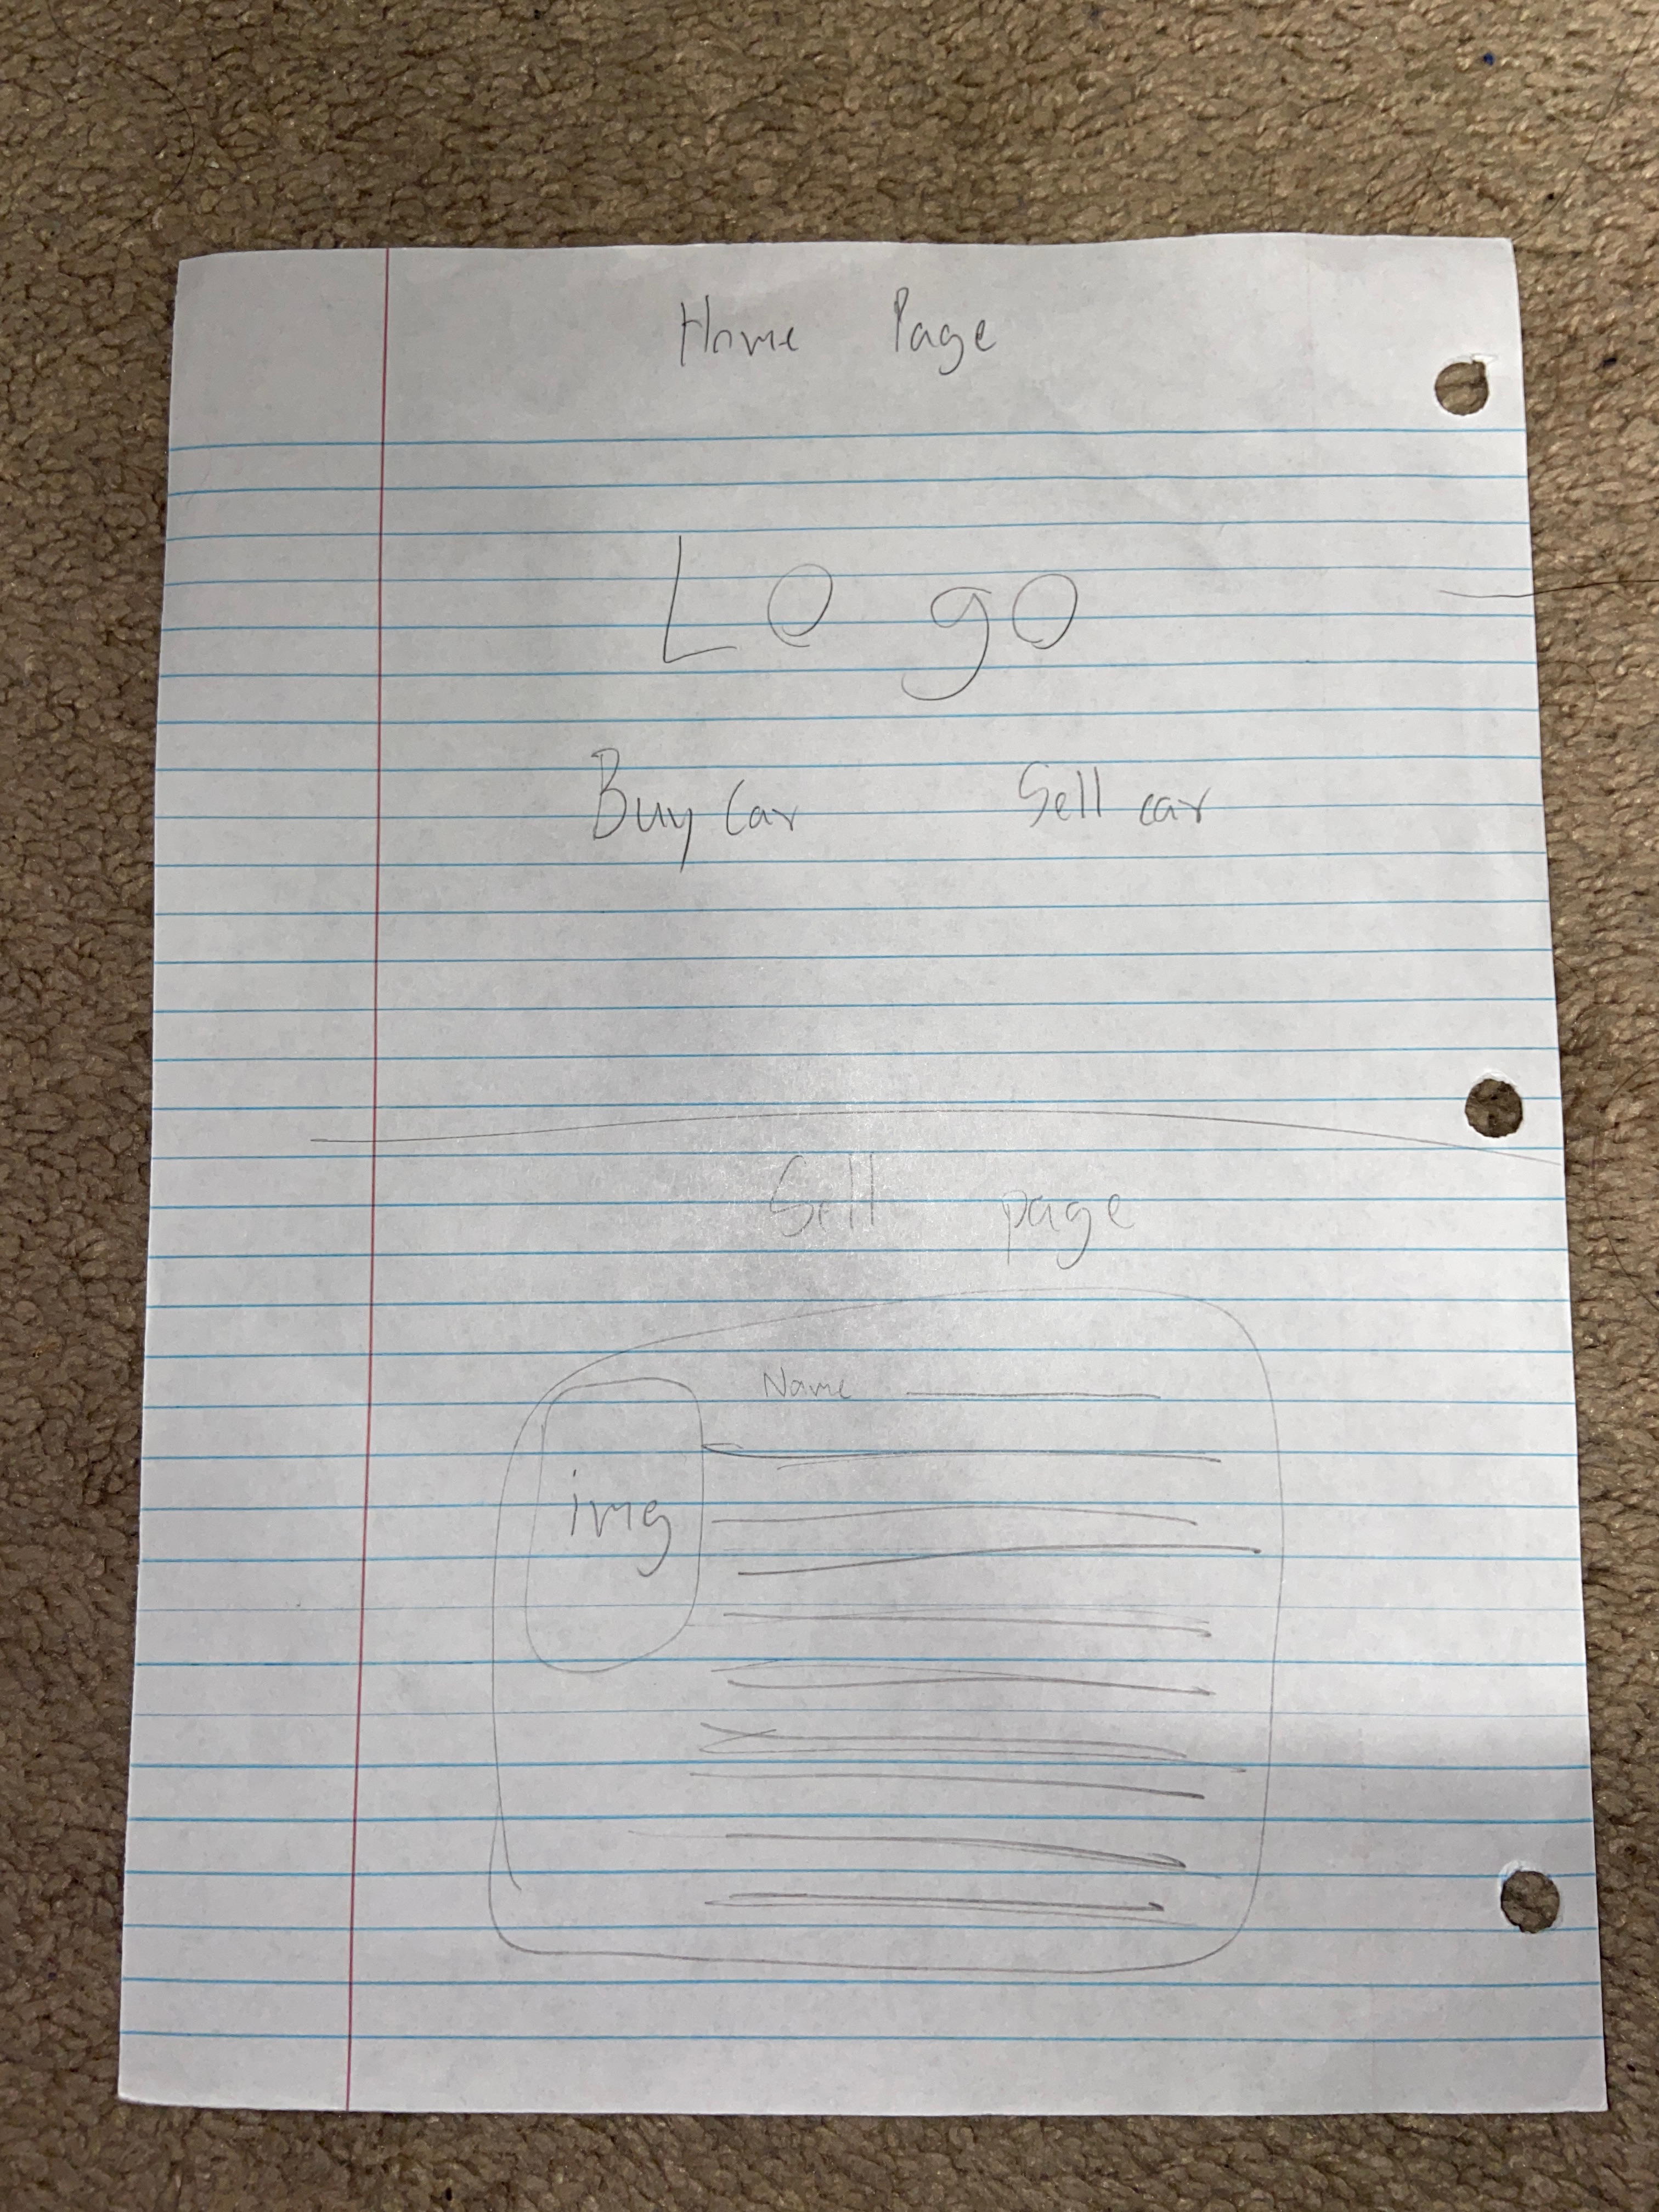 Home Page
Logo
Buy Car Sell car
Sell page
Name
img